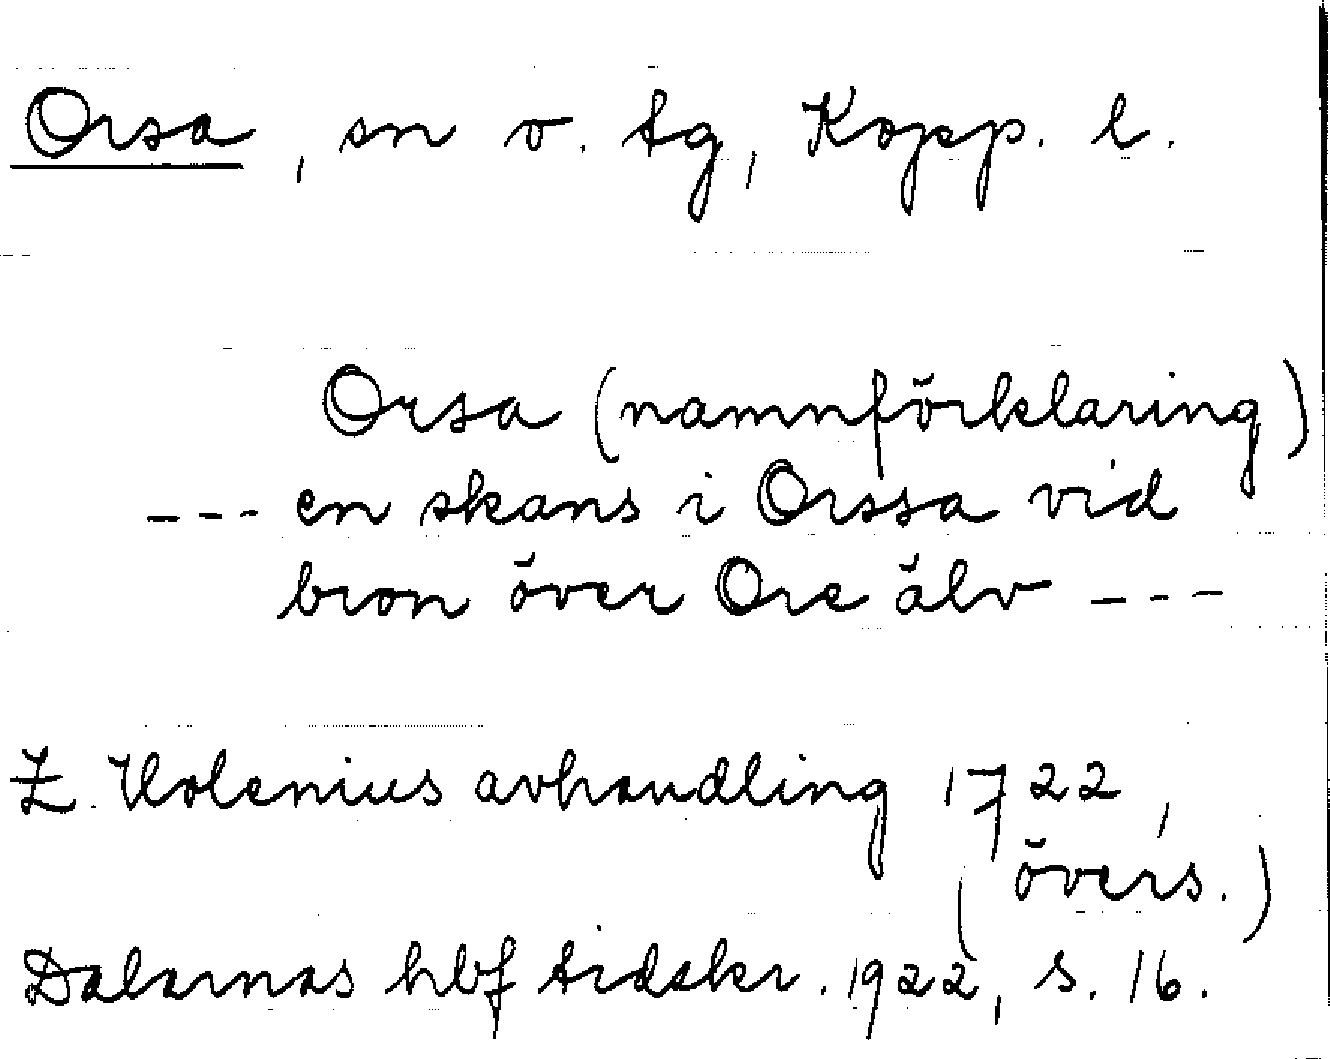 Orsa, sn o. tg, Kopp. l.
Orsa (namnförklaring)
--- en skans i Orssa vid
bron över Ore älv ---
Z. Holenius avhandling 1722,
(övers.)
Dalarnas hbf tidskr. 1922, s. 16.